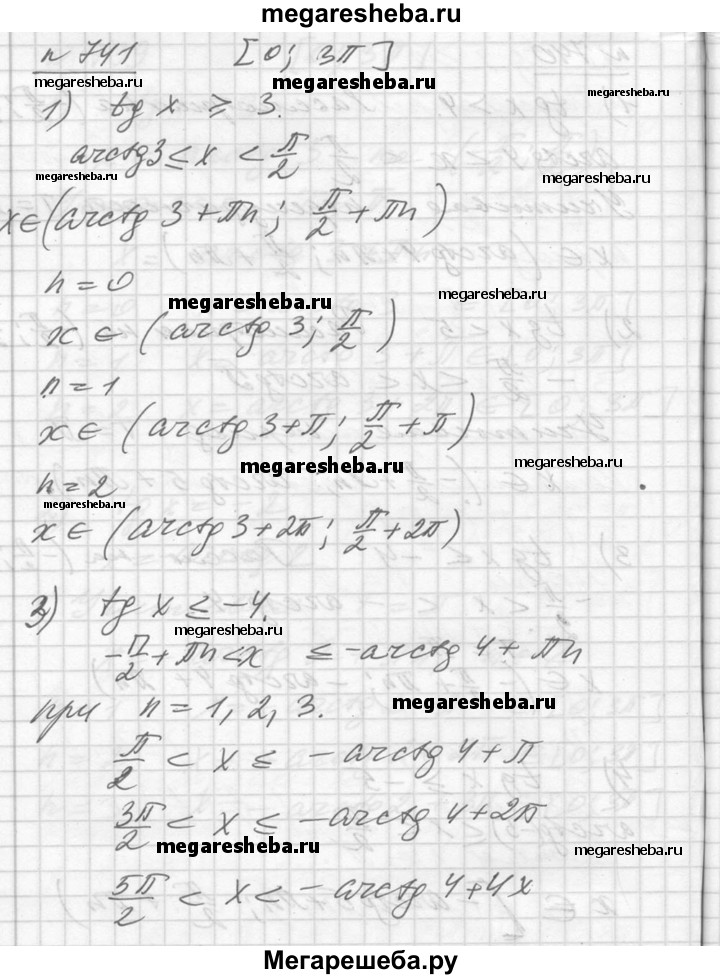 megaresheba.ru
n 741 [0; 3π]
megaresheba.ru megaresheba.ru
1) tg x ⩾ 3.
megaresheba.ru
arctg3 ≤ x < π/2
megaresheba.ru megaresheba.ru
x ∈ (arctg 3 + πn; π/2 + πn)
n = 0
megaresheba.ru megaresheba.ru
x ∈ (arctg 3; π/2)
n = 1
x ∈ (arctg 3 + π; π/2 + π)
megaresheba.ru megaresheba.ru
n = 2
megaresheba.ru
x ∈ (arctg 3 + 2π; π/2 + 2π)
3) tg x ≤ -4.
megaresheba.ru
-π/2 + πn < x ≤ -arctg 4 + πn
при n = 1, 2, 3.
megaresheba.ru
π/2 < x ≤ -arctg 4 + π
3π/2 < x ≤ -arctg 4 + 2π
megaresheba.ru megaresheba.ru
5π/2 < x < -arctg 4 + 4x
Мегарешеба.ру